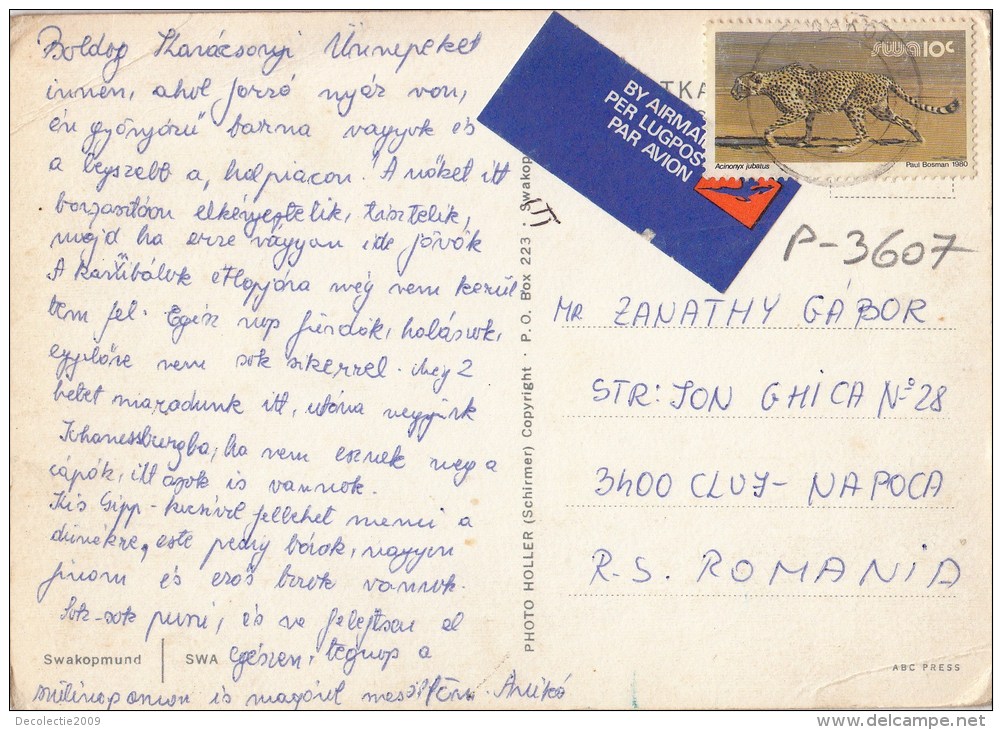 Boldog Karácsonyi Ünnepeket
innen, ahol forró nyár van,
én gyönyörű barna vagyok és
a legszebb a "holpiacon." A nőket itt
borzasztóan elkényeztetik, tisztelik,
majd ha erre vágyom ide jövök
A kannibálok étlapjára még nem kerül
tem fel. Egész nap fürdők, halászok,
egyelőre nem sok sikerrel. Még 2
hetet maradunk itt, utána megyünk
Johanessburgba, ha nem esznek meg a
cápák, itt azok is vannak.
Kis Gipp-kocsival fellehet menni a
dűnékre, este pedig bárok, nagyon
finom és erős borok vannak.
Sok-sok puszi, és ne felejtsen el
egészen, tegnap a
szülinapomon is magáról meséltem. Anikó
Swakopmund
SWA
PHOTO HOLLER (Schirmer) Copyright · P. O. Box 223 · Swakop
BY AIRMAI
PER LUGPOS
PAR AVION
TKA
swa 10c
Acinonyx jubatus
Paul Bosman 1980
P-3607
MR ZANATHY GÁBOR
STR: ION GHICA Nº 28
3400 CLUJ-NAPOCA
R.S. ROMANIA
ABC PRESS
Decolectie2009
www.delcampe.net